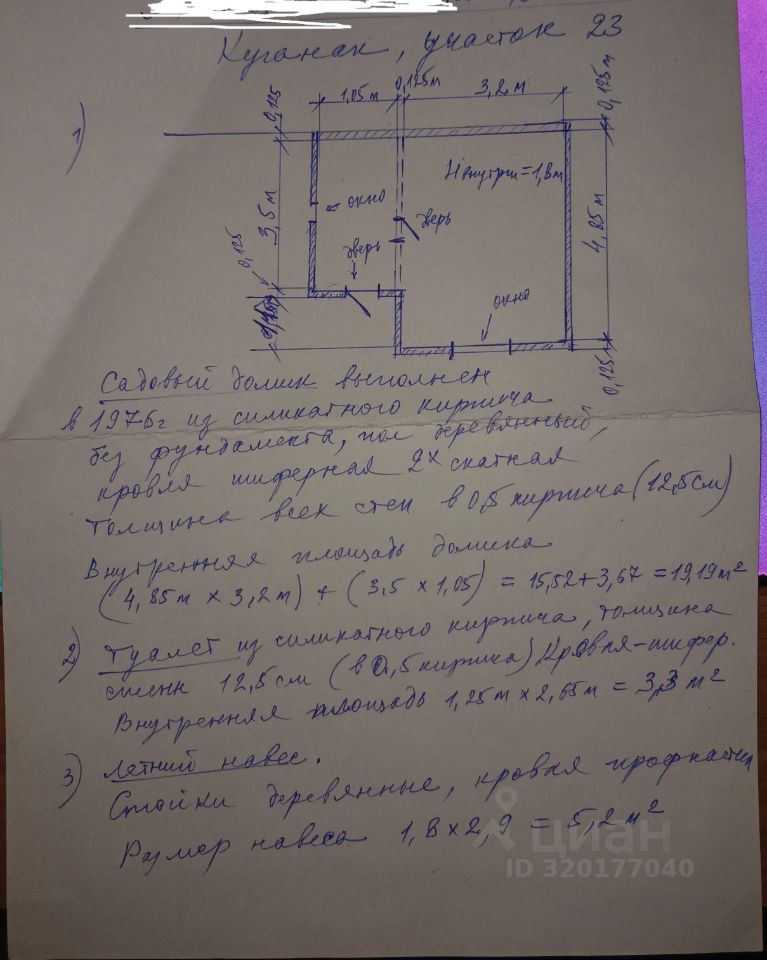 Куганак, участок 23
1)
0,125
1,05 м
0,125м
3,2 м
0,125 м
3,5 м
окно
дверь
Н внутри = 1,8 м
дверь
0,125
окно
4,85 м
0,125
Садовый домик выполнен
в 1976г из силикатного кирпича
без фундамента, пол деревянный,
кровля шиферная 2х скатная
Толщина всех стен в 0,5 кирпича (12,5см)
Внутренняя площадь домика
(4,85м х 3,2м) + (3.5 х 1,05) = 15,52 + 3,67 = 19,19 м²
2) Туалет из силикатного кирпича, толщина
стенн 12,5 см (в 0,5 кирпича) Кровля - шифер.
Внутренняя площадь 1,25м х 2,65м = 3,3 м²
3) Летний навес.
Стойки деревянные, кровля профнастил
Размер навеса 1,8 х 2,9 = 5,2 м²
циан
ID 320177040